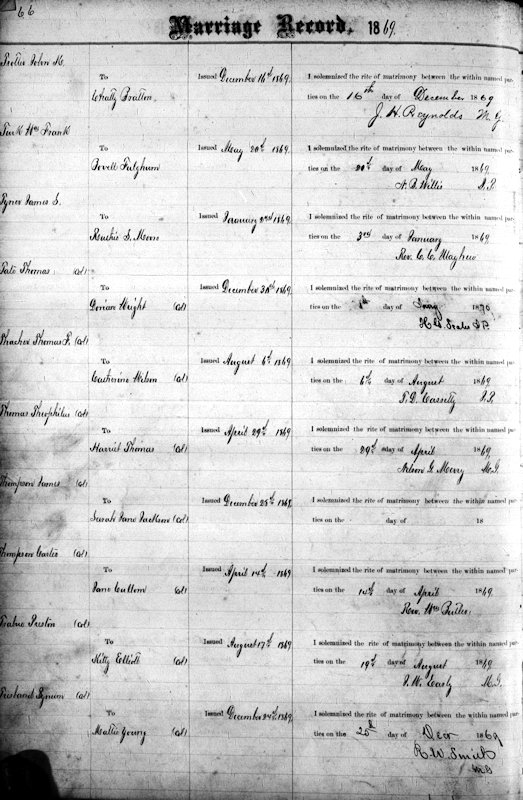 66
Marriage Record, 1869.
John
To Issued December 16th 1869. I solemnized the rite of matrimony between the within named par-
Bratton ties on the 16th day of December 1869
J. H. Reynolds M. G.
Turk Wm Frank
To Issued May 20th 1869. I solemnized the rite of matrimony between the within named par-
Fulghum ties on the 20th day of May 1869
Willis J.P.
Tyner James S.
To Issued January 2nd 1869. I solemnized the rite of matrimony between the within named par-
S. ties on the 3rd day of January 1869
Rev. C. C. Mayhew
Tate Thomas (Col)
To Issued December 1869. I solemnized the rite of matrimony between the within named par-
Wright (Col) ties on the 1st day of 1870
Scales J P
Thacher Thomas F. (Col)
To Issued August 6th 1869. I solemnized the rite of matrimony between the within named par-
Catherine Wilson (Col) ties on the 6th day of August 1869
Cassetty J.P.
Thomas Theophilus (Col)
To Issued April 29th 1869. I solemnized the rite of matrimony between the within named par-
Harriet Thomas (Col) ties on the 29th day of April 1869
Nelson G. Merry M.G.
Thompson James (Col)
To Issued December 25th I solemnized the rite of matrimony between the within named par-
Sarah Jane Jackson (Col) ties on the day of 18
Thompson (Col)
To Issued April 14th 1869 I solemnized the rite of matrimony between the within named par-
Jane Cullom (Col) ties on the 15th day of April 1869
Rev. Wm Butler
Preston (Col)
To Issued August 17th 1869 I solemnized the rite of matrimony between the within named par-
Kitty Elliott (Col) ties on the 19th day of August 1869
Early M.G.
(Col)
To Issued December 24th 1869. I solemnized the rite of matrimony between the within named par-
Mattie Young (Col) ties on the 25th day of Decr 1869
R. W. Smith
M G